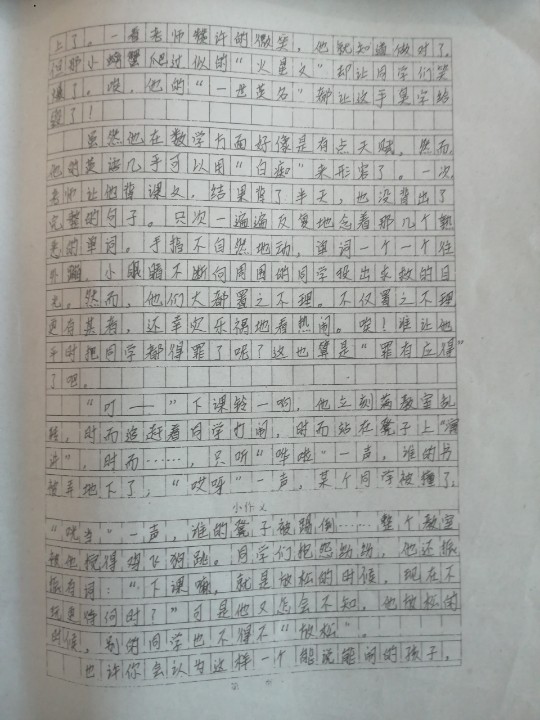 上了。一看老师赞许的微笑，他就知道做对了。
但那小螃蟹爬过似的“火星文”却让同学们笑
爆了。唉，他的“一世英名”都让这手臭字给
毁了！
虽然他在数学方面好像是有点天赋，然而，
他的英语几乎可以用“白痴”来形容了。一次，
老师让他背课文，结果背了半天，也没背出了
完整的句子。只次一遍遍反复地念着那几个熟
悉的单词。手指不自然地动，单词一个一个往
外蹦，小眼睛不断向周围的同学投出求救的目
光。然而，他们大都置之不理。不仅置之不理
更有甚者，还幸灾乐祸地看热闹。唉！谁让他
平时把同学都得罪了呢？这也算是“罪有应得”
了吧。
“叮——”下课铃一响，他立刻满教室乱
转，时而追赶着同学打闹，时而站在凳子上“演
讲”，时而……，只听“哗啦”一声，谁的书
被弄地下了，“哎呀”一声，某个同学被撞了；
小作文
“咣当”一声，谁的凳子被踢倒……整个教室
被他搅得鸡飞狗跳。同学们抱怨纷纷，他还振
振有词：“下课嘛，就是放松的时候，现在不
玩更待何时？”可是他又怎会不知，他放松的
时候，别的同学也不得不“放松”。
也许你会认为这样一个能说能闹的孩子，